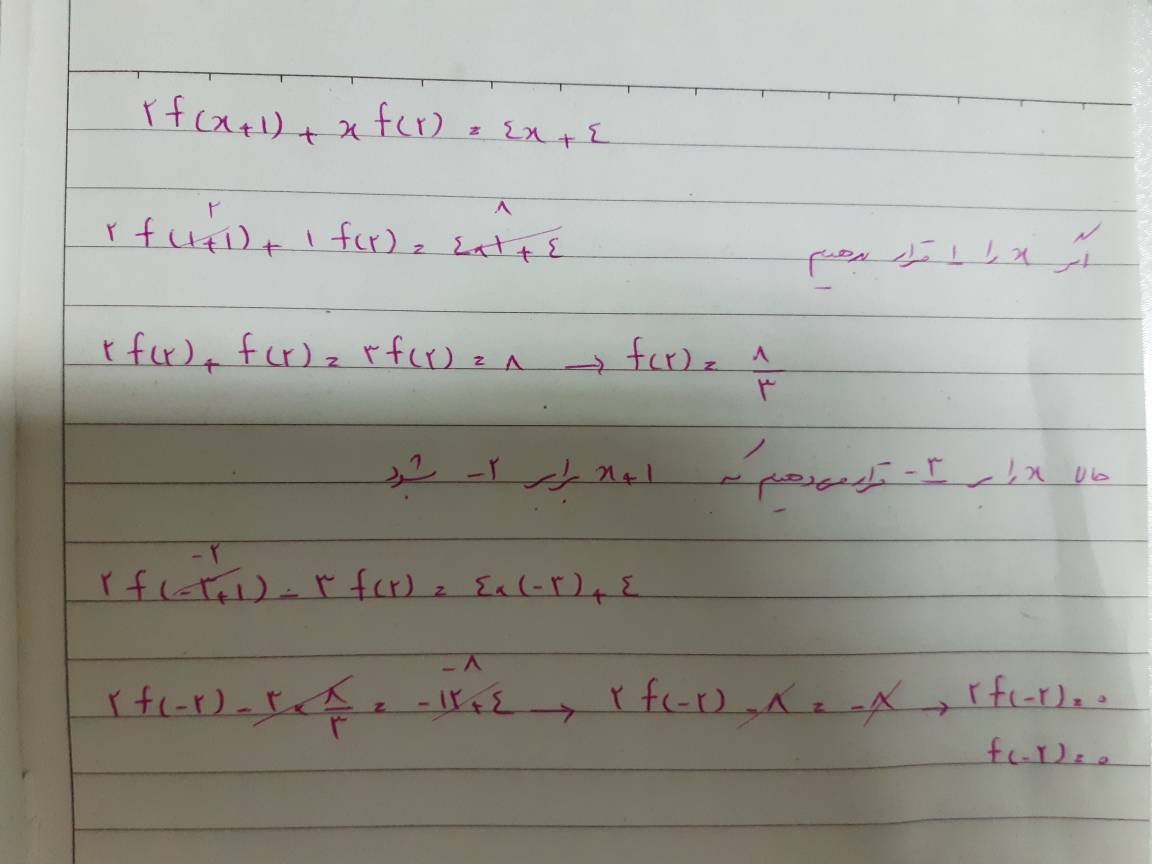 ۲f(x+۱) + x f(۲) = ٤x + ٤
۲ f(۱+۱) + ۱ f(۲) = ٤×۱ + ٤ اگر x را ۱ قرار بدهیم
۲ ۸
۲f(۲) + f(۲) = ۳f(۲) = ۸ → f(۲) = ۸/۳
حال x را بر -۳ قرار می‌دهیم که x+۱ برابر -۲ شود
-۲
۲f(-۳+۱) - ۳f(۲) = ٤×(-۳) + ٤
-۸
۲f(-۲) - ۳×۸/۳ = -۱۲+٤ → ۲f(-۲) - ۸ = -۸ → ۲f(-۲) = ۰
f(-۲) = ۰